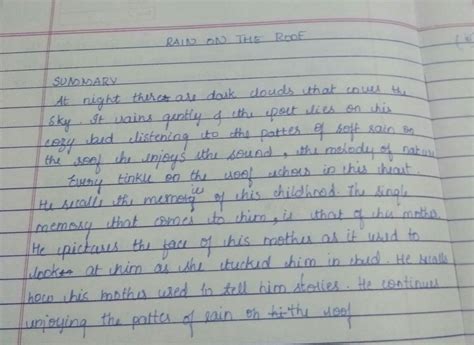 RAIN ON THE ROOF
SUMMARY
At night there are dark clouds that cover the
sky. It rains gently & the poet lies on his
cozy bed listening to the patter of soft rain on
the roof he enjoys the sound, the melody of nature
Every tinkle on the roof echoes in his heart.
He recalls the memories of his childhood. The single
memory that comes to him, is that of his mother
He pictures the face of his mother as it used to
look at him as she tucked him in bed. He recalls
how his mother used to tell him stories. He continues
enjoying the patter of rain on the roof